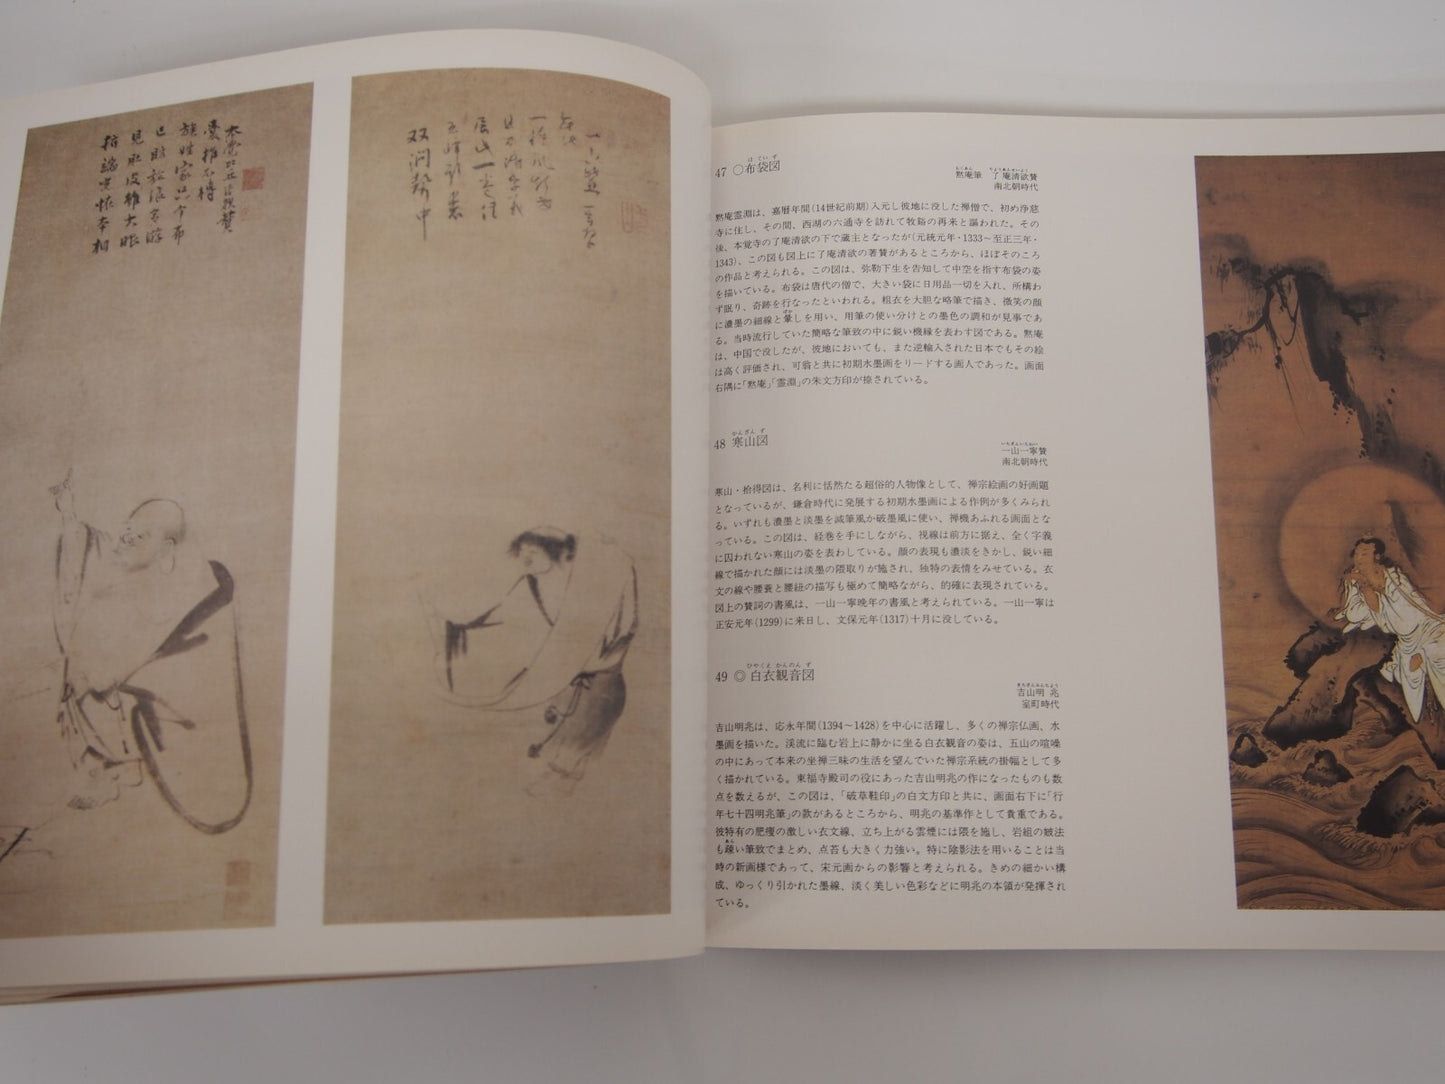 47 ○布袋図
黙庵筆 了庵清欲賛
南北朝時代
黙庵霊淵は、嘉暦年間(14世紀前期)入元し彼地に没した禅僧で、初め浄慈
寺に住し、その間、西湖の六通寺を訪れて牧谿の再来と謳われた。その
後、本覚寺の了庵清欲の下で蔵主となったが(元統元年・1333～至正三年・
1343)、この図も図上に了庵清欲の著賛があるところから、ほぼそのころ
の作品と考えられる。この図は、弥勒下生を告知して中空を指す布袋の姿
を描いている。布袋は唐代の僧で、大きい袋に日用品一切を入れ、所構わ
ず眠り、奇跡を行なったといわれる。粗衣を大胆な略筆で描き、微笑の顔
に濃墨の細線と暈しを用い、用筆の使い分けとの墨色の調和が見事であ
る。当時流行していた簡略な筆致の中に鋭い機縁を表わす図である。黙庵
は、中国で没したが、彼地においても、また逆輸入された日本でもその絵
は高く評価され、可翁と共に初期水墨画をリードする画人であった。画面
右隅に「黙庵」「霊淵」の朱文方印が捺されている。
48 寒山図
一山一寧賛
南北朝時代
寒山・拾得図は、名利に恬然たる超俗的人物像として、禅宗絵画の好画題
となっているが、鎌倉時代に発展する初期水墨画による作例が多くみられ
る。いずれも濃墨と淡墨を減筆風か破墨風に使い、禅機あふれる画面とな
っている。この図は、経巻を手にしながら、視線は前方に据え、全く字義
に囚われない寒山の姿を表わしている。顔の表現も濃淡をきかし、鋭い細
線で描かれた顔には淡墨の隈取りが施され、独特の表情をみせている。衣
文の線や腰蓑と腰紐の描写も極めて簡略ながら、的確に表現されている。
図上の賛詞の書風は、一山一寧晩年の書風と考えられている。一山一寧は
正安元年(1299)に来日し、文保元年(1317)十月に没している。
49 ◎白衣観音図
吉山明 兆
室町時代
吉山明兆は、応永年間(1394～1428)を中心に活躍し、多くの禅宗仏画、水
墨画を描いた。渓流に臨む岩上に静かに坐る白衣観音の姿は、五山の喧噪
の中にあって本来の坐禅三昧の生活を望んでいた禅宗系統の掛幅として多
く描かれている。東福寺殿司の役にあった吉山明兆の作になったものも数
点を数えるが、この図は、「破草鞋印」の白文方印と共に、画面右下に「行
年七十四明兆筆」の款があるところから、明兆の基準作として貴重である。
彼特有の肥痩の激しい衣文線、立ち上がる雲煙には隈を施し、岩組の皴法
も疎い筆致でまとめ、点苔も大きく力強い。特に陰影法を用いることは当
時の新画様であって、宋元画からの影響と考えられる。きめの細かい構
成、ゆっくり引かれた墨線、淡く美しい色彩などに明兆の本領が発揮され
ている。